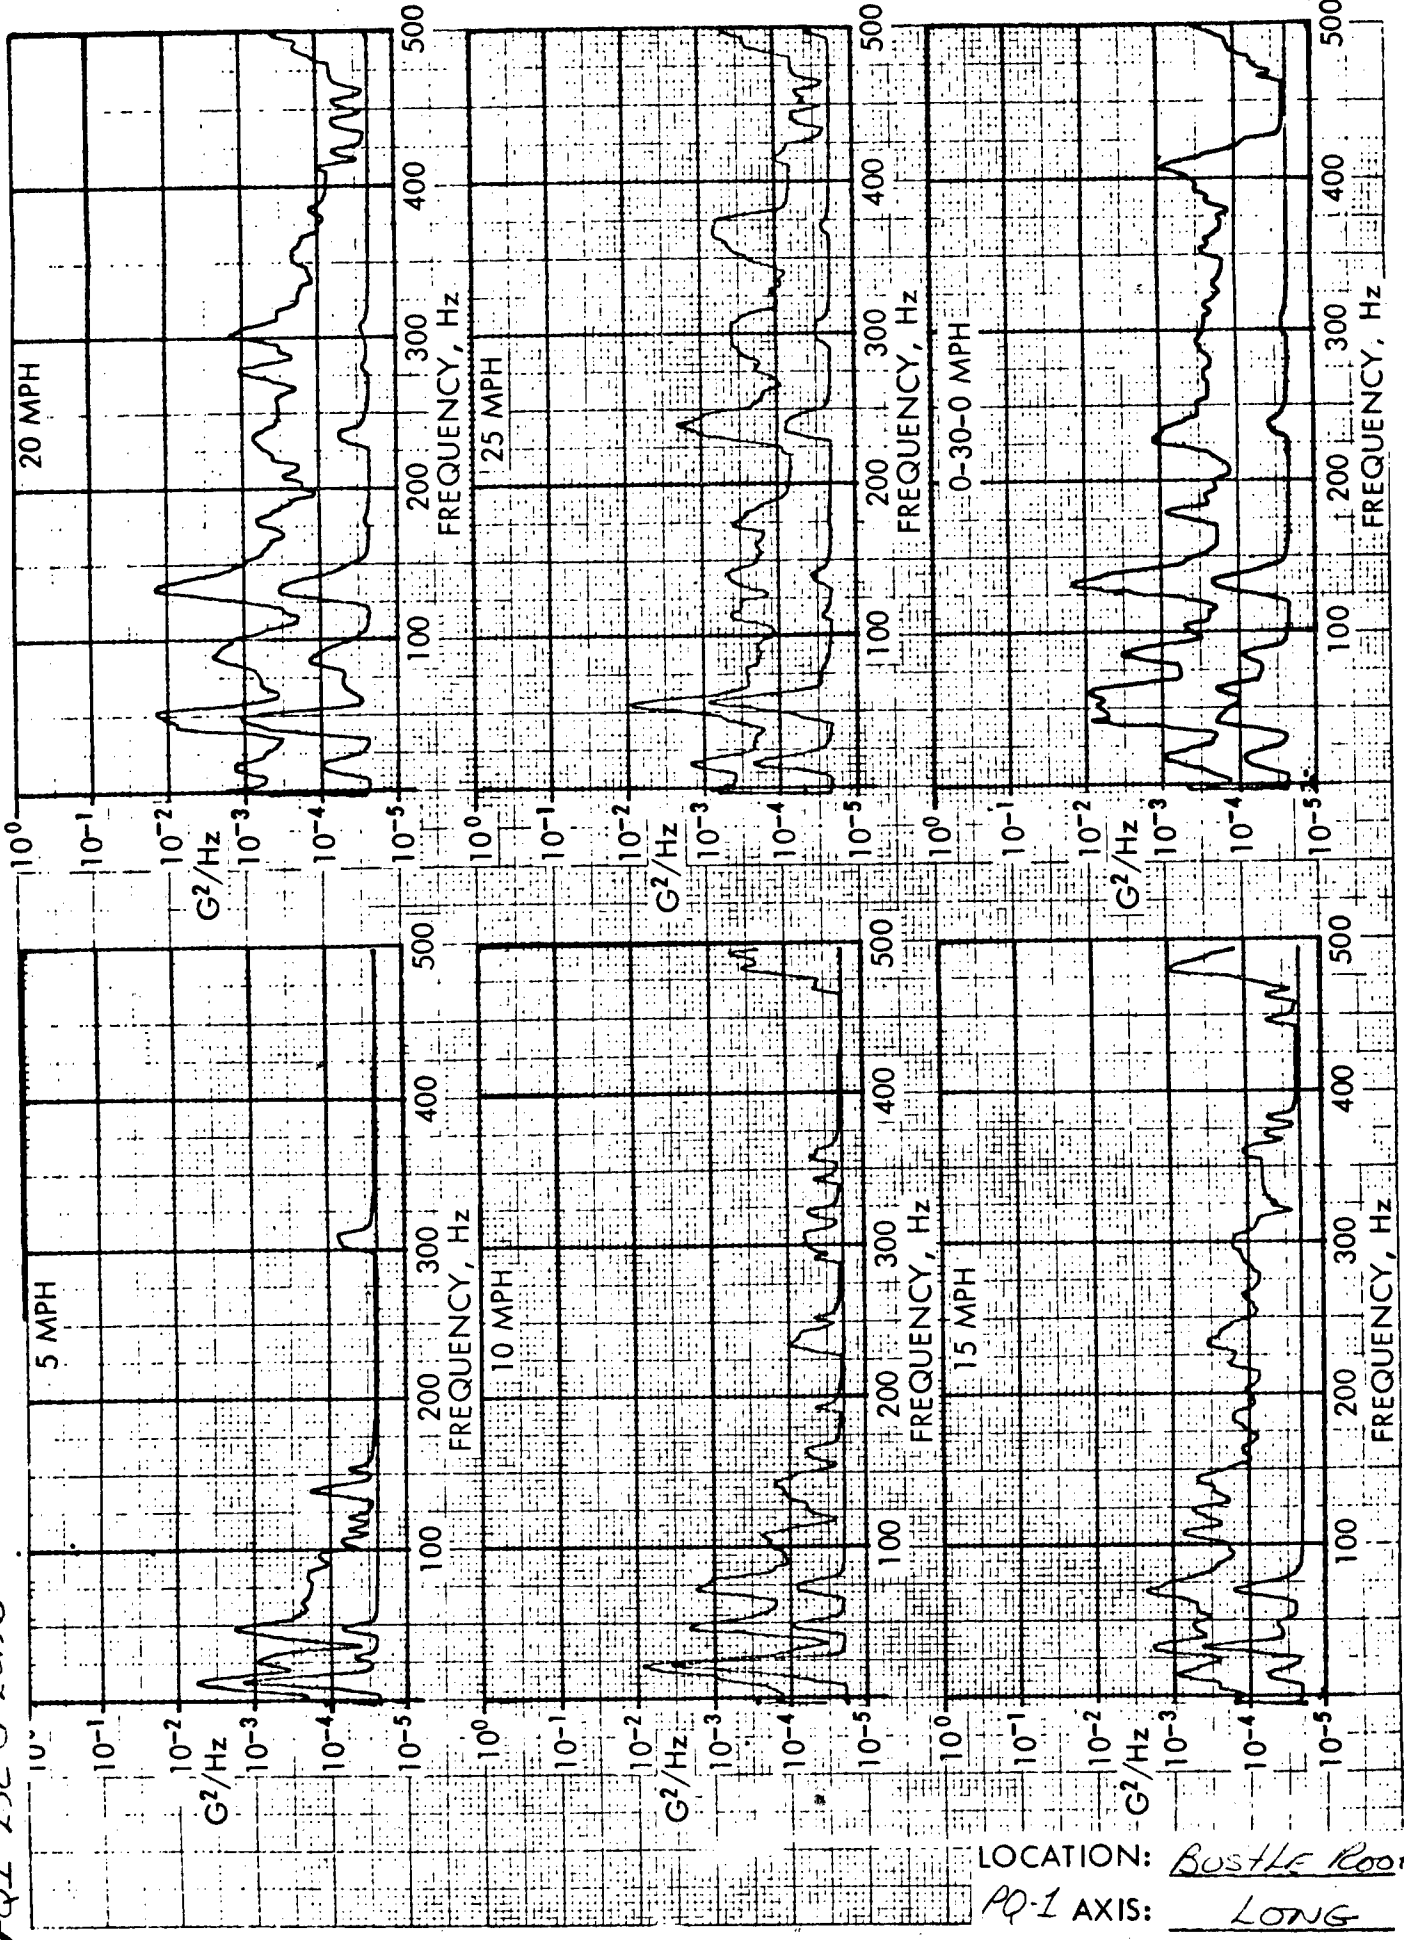 5 MPH
10⁻¹
10⁻²
G²/Hz
10⁻³
10⁻⁴
10⁻⁵
100
200
300
400
500
FREQUENCY, Hz
20 MPH
10⁰
10⁻¹
10⁻²
G²/Hz
10⁻³
10⁻⁴
10⁻⁵
100
200
300
400
500
FREQUENCY, Hz
10 MPH
10⁰
10⁻¹
10⁻²
G²/Hz
10⁻³
10⁻⁴
10⁻⁵
100
200
300
400
500
FREQUENCY, Hz
25 MPH
10⁰
10⁻¹
10⁻²
G²/Hz
10⁻³
10⁻⁴
10⁻⁵
100
200
300
400
500
FREQUENCY, Hz
15 MPH
10⁰
10⁻¹
10⁻²
G²/Hz
10⁻³
10⁻⁴
10⁻⁵
100
200
300
400
500
FREQUENCY, Hz
0-30-0 MPH
10⁰
10⁻¹
10⁻²
G²/Hz
10⁻³
10⁻⁴
10⁻⁵
100
200
300
400
500
FREQUENCY, Hz
LOCATION: BUSTLE
PQ-1 AXIS: LONG